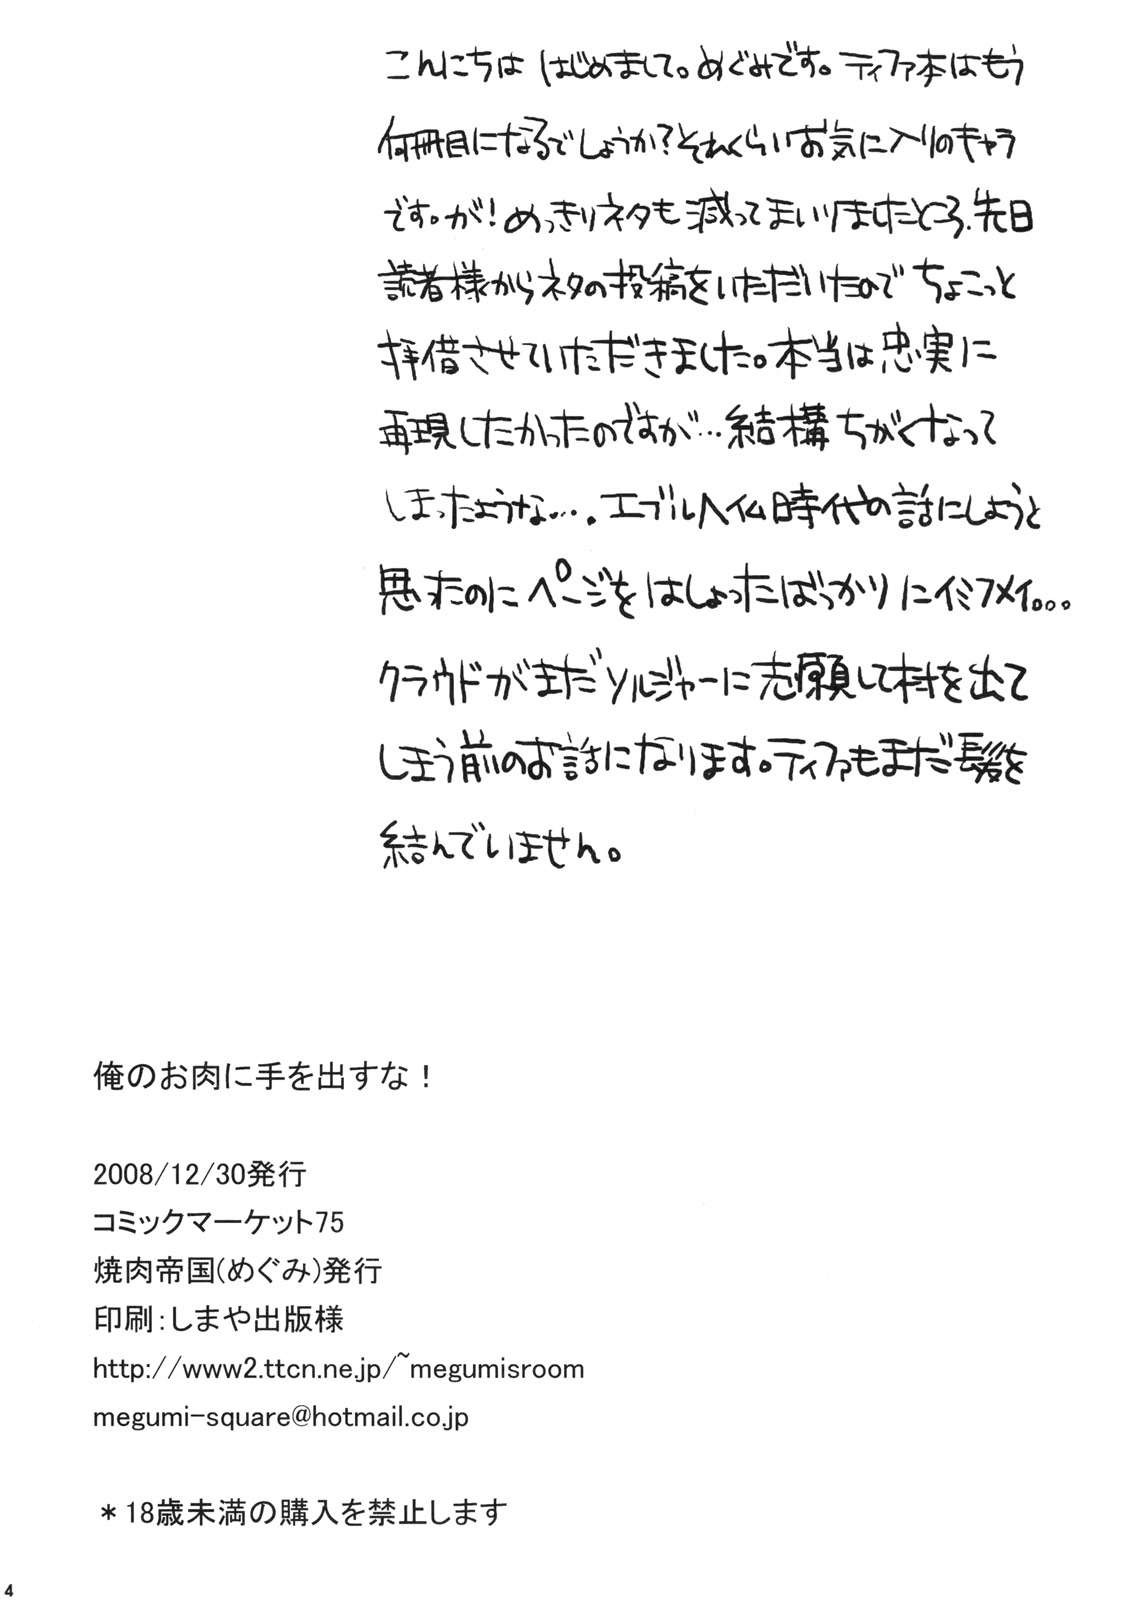 こんにちは はじめまして。めぐみです。ティファ本はもう
何冊目になるでしょうか?それくらいお気に入りのキャラ
です。が!めっきりネタも減ってまいりましたところ、先日
読者様からネタの投稿をいただいたので ちょこっと
拝借させていただきました。本当は忠実に
再現したかったのですが…結構ちがくなって
しまったような…。エブルヘイム時代の話にしようと
思ったのにページをはしょったばっかりにイミフメイ。。。
クラウドがまだソルジャーに志願して村を出て
しまう前のお話になります。ティファもまだ長髪を
結んでいません。
俺のお肉に手を出すな!
2008/12/30発行
コミックマーケット75
焼肉帝国(めぐみ)発行
印刷:しまや出版様
http://www2.ttcn.ne.jp/~megumisroom
megumi-square@hotmail.co.jp
*18歳未満の購入を禁止します
4